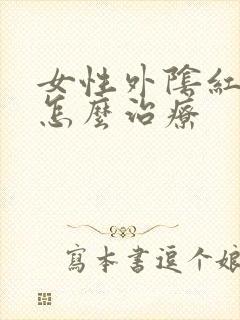 女性外陰紅
怎麼治療
寫本書逗个娘